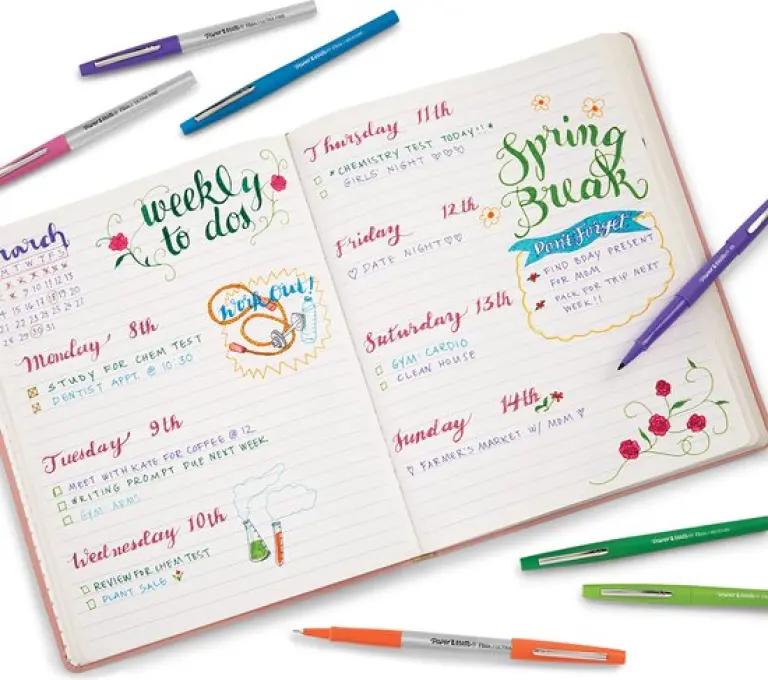 Paper Mate
Flair
Paper Mate
Paper Mate
Flair
march
M T W T F S
9 10 11 12 13
14 15 16 17 18 19 20
21 22 23 24 25 26 27
28 29 30 31
weekly
to dos
work out!
Monday 8th
STUDY FOR CHEM TEST
DENTIST APPT. @ 10:30
Tuesday 9th
MEET WITH KATE FOR COFFEE @ 12
WRITING PROMPT DUE NEXT WEEK
GYM ARMS
Wednesday 10th
REVIEW FOR CHEM TEST
PLANT SALE
Thursday 11th
*CHEMISTRY TEST TODAY!!*
GIRLS' NIGHT ♡♡♡
Friday 12th
♡ DATE NIGHT ♡♡
Saturday 13th
GYM: CARDIO
CLEAN HOUSE
Sunday 14th
♡ FARMER'S MARKET W/ MOM ♡
Spring
Break
Don't Forget
FIND BDAY PRESENT
FOR MOM
PACK FOR TRIP NEXT
WEEK!!
Paper Mate
Paper Mate
Flair
Paper Mate
Paper Mate
Flair